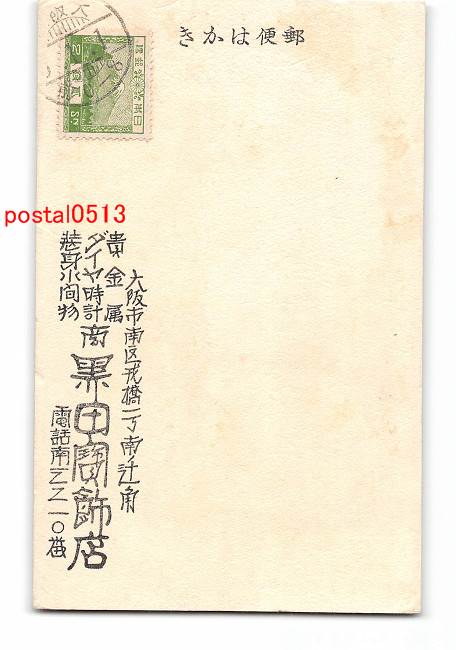 郵便はかき
大阪市南区戎橋一丁南辻角
貴金属
ダイヤ時計商
装身小間物
黒田寶飾店
電話南二二一〇番
大阪
postal0513